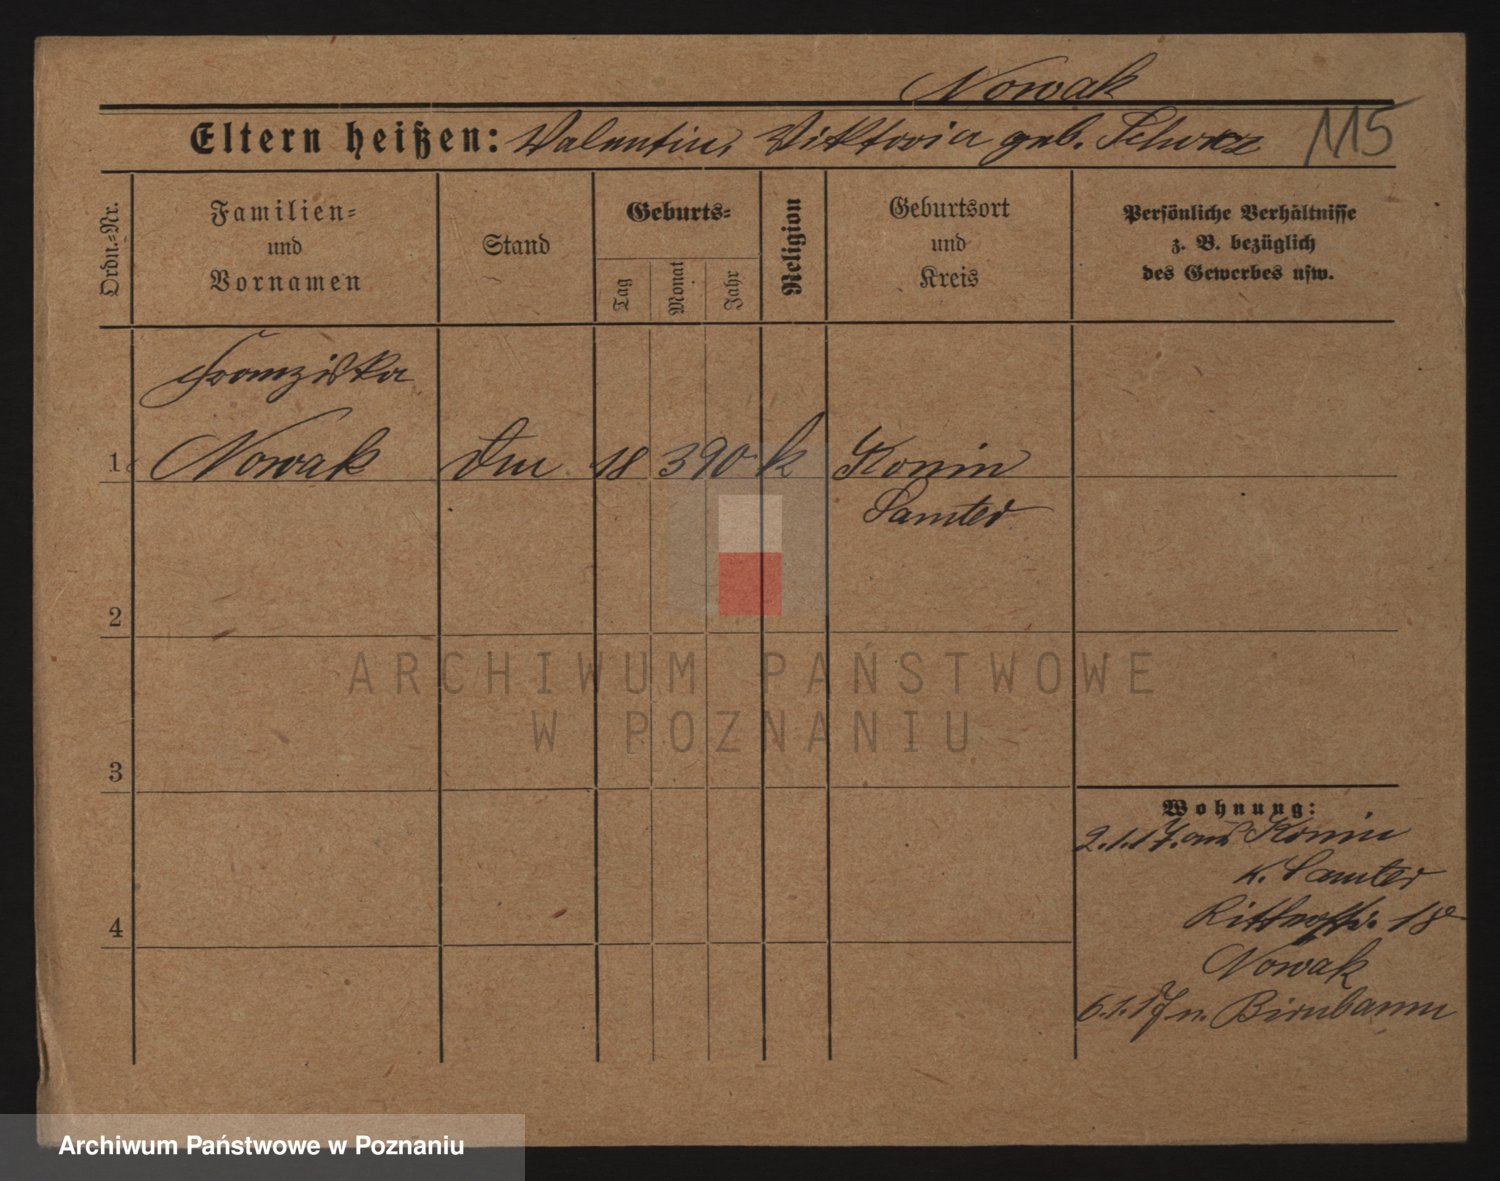 Nowak
Eltern heißen: Valentin, Viktoria geb. 115
Ordn.-Nr.
Familien-
und
Vornamen
Stand
Geburts-
Tag
Monat
Jahr
Religion
Geburtsort
und
Kreis
Persönliche Verhältnisse
z. B. bezüglich
des Gewerbes usw.
Franziska
1 Nowak 18 3 90 k Konin
Samter
2
ARCHIWUM PAŃSTWOWE
W POZNANIU
3
Wohnung:
2.1.17. aus Konin
K. Samter
18
4
Nowak
6.1.17 n. Birnbaum
Archiwum Państwowe w Poznaniu